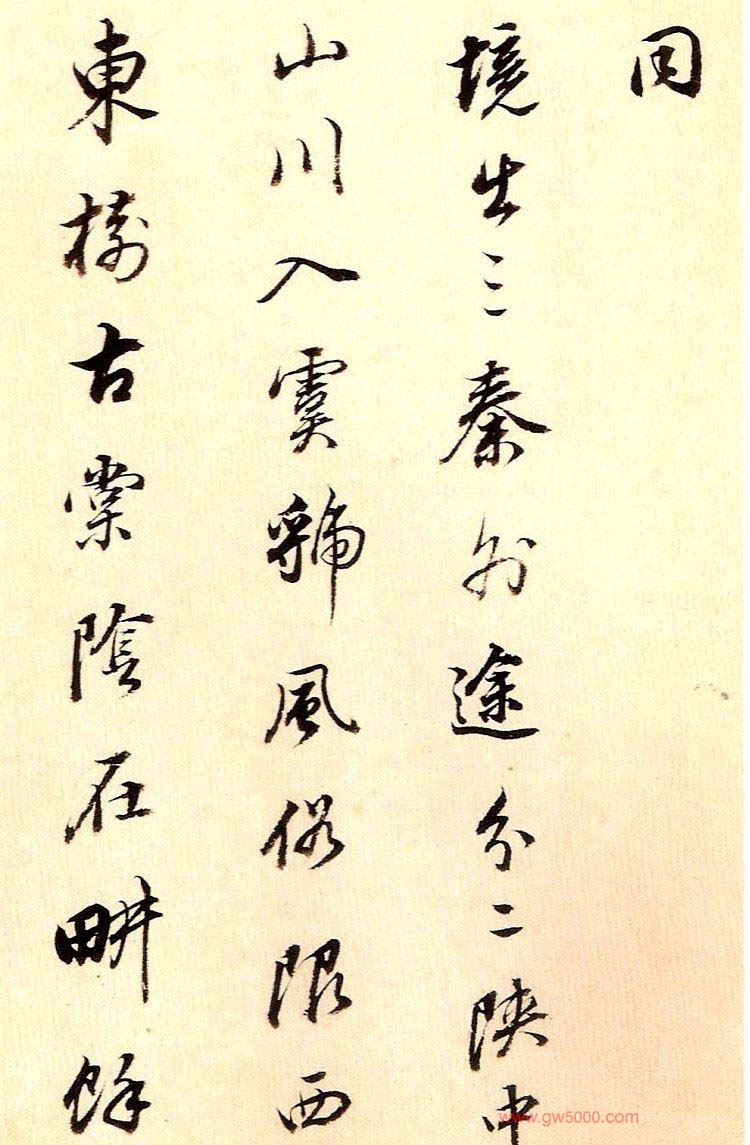 同
境出三秦外途分二陝中
山川入虞虢風俗限西
東樹古棠陰在畊餘
www.gw5000.com